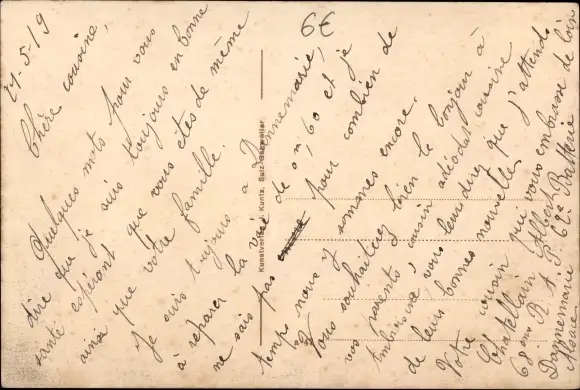 6€
27-5-19
Chère cousine,
Quelques mots pour vous
dire que je suis toujours en bonne
santé espérant que vous êtes de même
ainsi que votre famille.
Je suis toujours a Dannemarie,
à réparer la vie de 0m,60 et je
ne sais pas pour combien de
temps nous y sommes encore.
Vous souhaiterez bien le bonjour à
vos parents, cousin adéodat cousine
vous leur direz que j'attends
de leur bonnes nouvelles
Votre cousin qui vous embrasse de loin
Chatellain Albert
68eme R A P 62e Batterie
Dannemarie
Alsace
Kunstverlag J. Kuntz, Sulz-Gebweiler